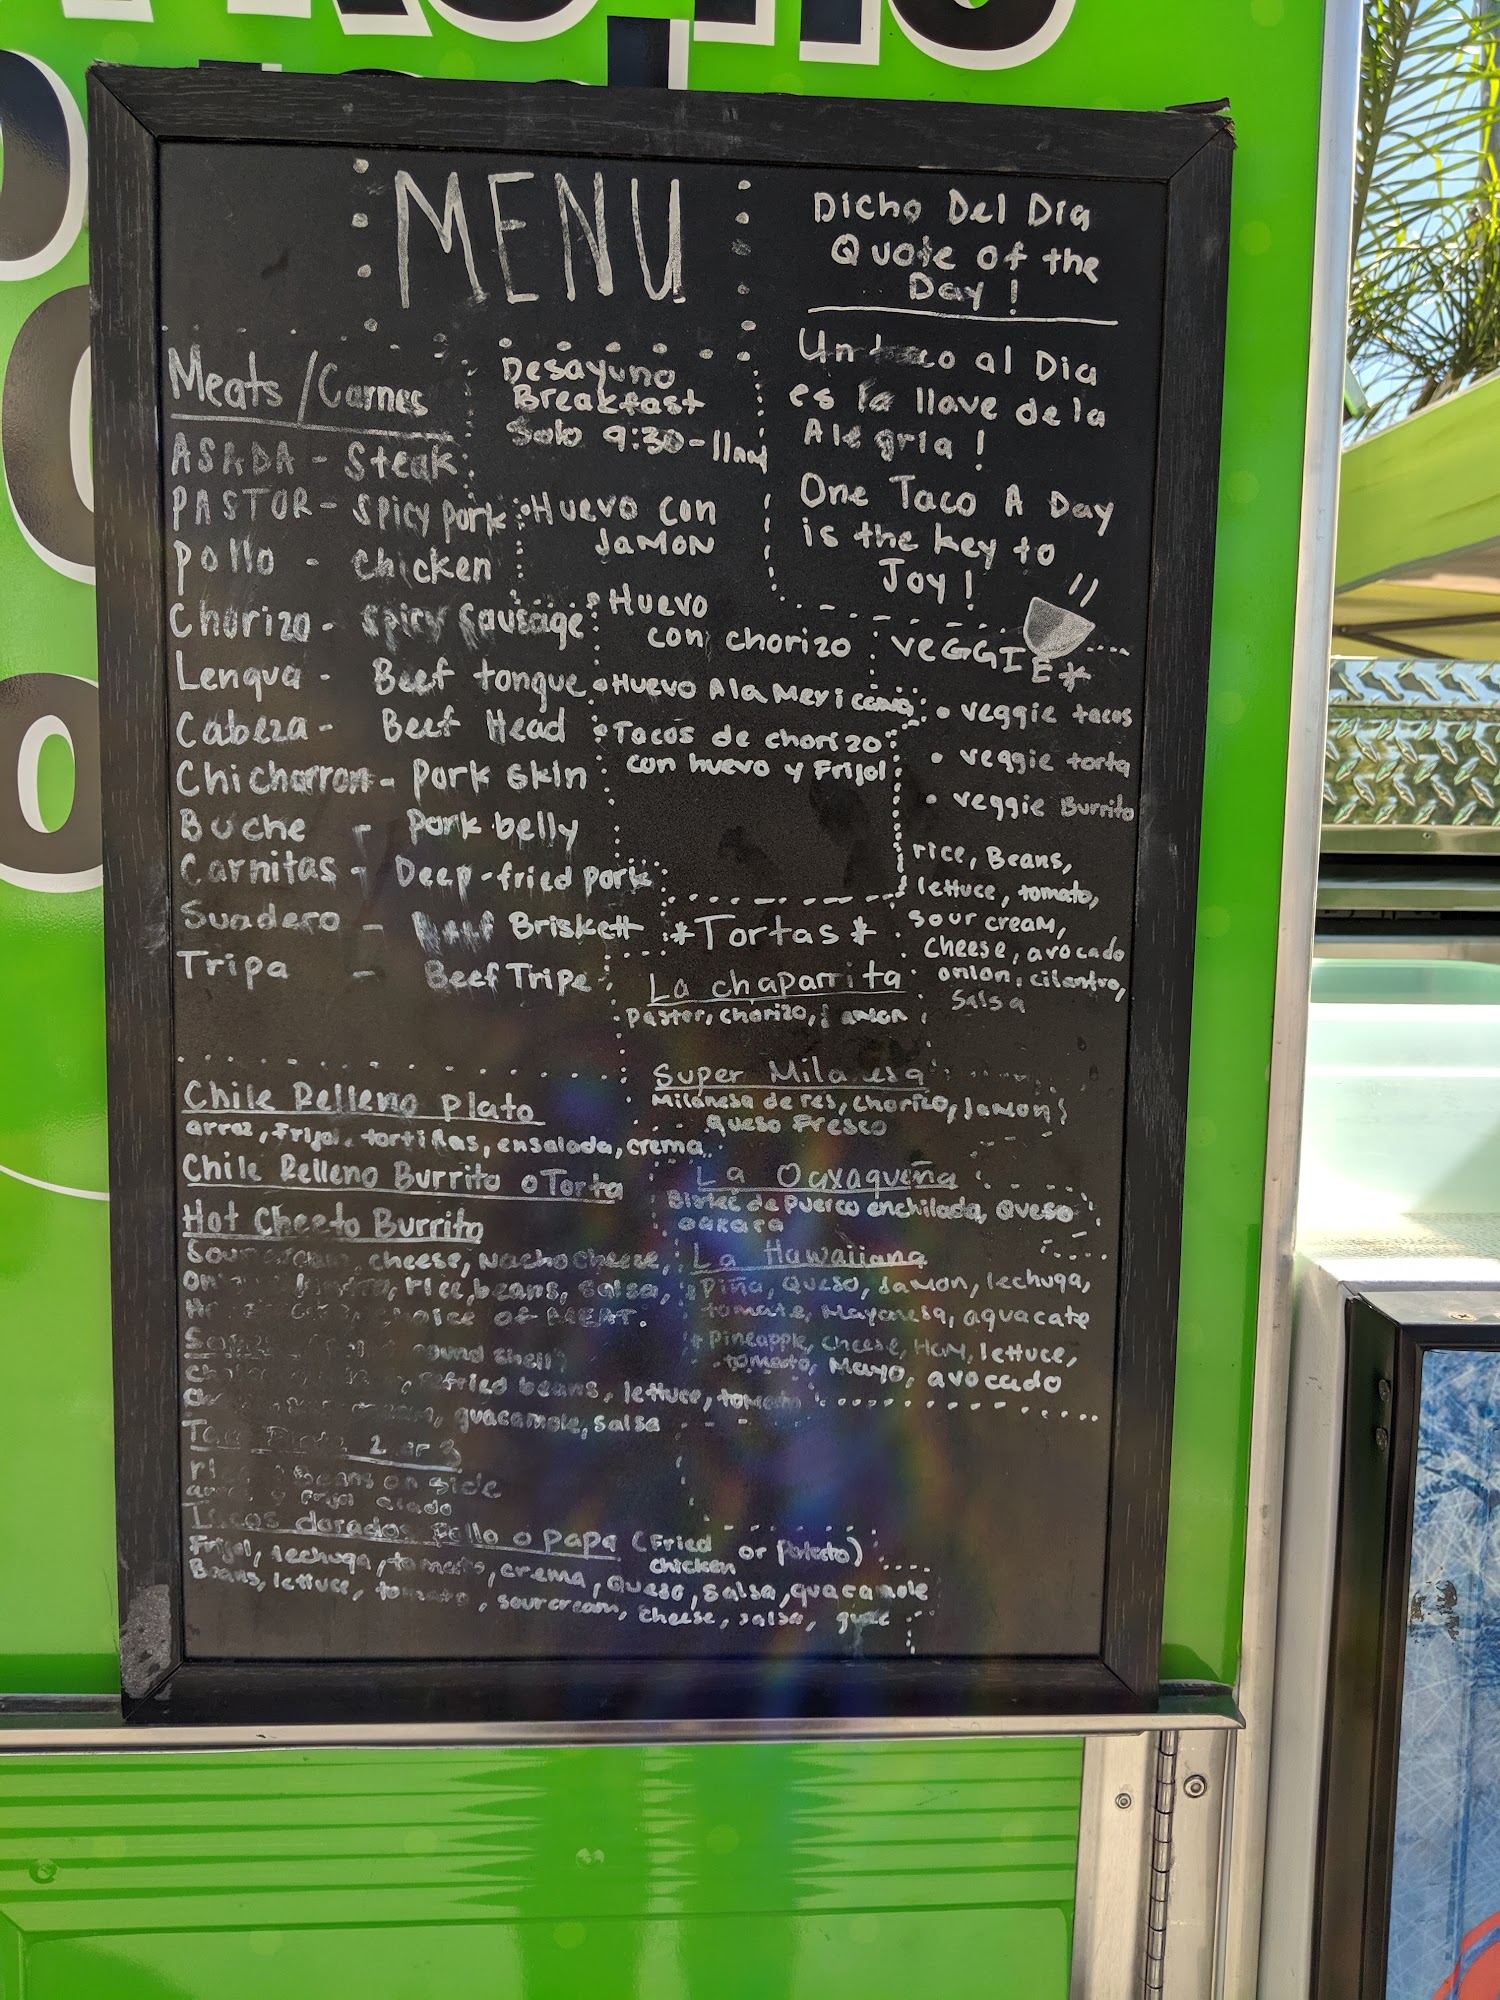 MENU
Dicho Del Dia
Quote of the
Day!
Un taco al Dia
es la llave de la
Alegria!
One Taco A Day
is the key to
Joy!
Meats/Carnes
ASADA - Steak
PASTOR - Spicy pork
pollo - chicken
Chorizo - Spicy Sausage
Lengua - Beef tongue
Cabeza - Beef Head
Chicharron - Pork Skin
Buche - Pork belly
Carnitas - Deep-fried pork
Suadero - Beef Briskett
Tripa - Beef Tripe
Desayuno
Breakfast
Solo 9:30-11am
• Huevo con
Jamon
• Huevo
con chorizo
• Huevo Ala Mexicana
• Tacos de chorizo
con huevo y Frijol
VeGGIE*
• veggie tacos
• veggie torta
• veggie Burrito
rice, Beans,
lettuce, tomato,
sour cream,
cheese, avocado
onion, cilantro,
Salsa
*Tortas*
La chaparrita
Pastor, chorizo, jamon
Super Milanesa
Milanesa de res, chorizo, Jamon,
queso Fresco
La Oaxaqueña
Bistec de Puerco enchilada, Queso
oaxaca
La Hawaiiana
Piña, Queso, Jamon, lechuga,
tomate, Mayonesa, aguacate
* Pineapple, cheese, Ham, lettuce,
tomato, Mayo, avocado
Chile Relleno Plato
arroz, Frijol, tortillas, ensalada, crema
Chile Relleno Burrito o Torta
Hot Cheeto Burrito
Sour cream, cheese, Nacho cheese,
rice, beans, salsa,
choice of MEAT.
shell)
refried beans, lettuce, tomato
guacamole, salsa
2 or 3
beans on side
y Frijol alado
Tacos dorados Pollo o papa (Fried chicken or Potato)
Frijol, lechuga, tomate, crema, Queso, salsa, guacamole
Beans, lettuce, tomato, sour cream, cheese, salsa, guac